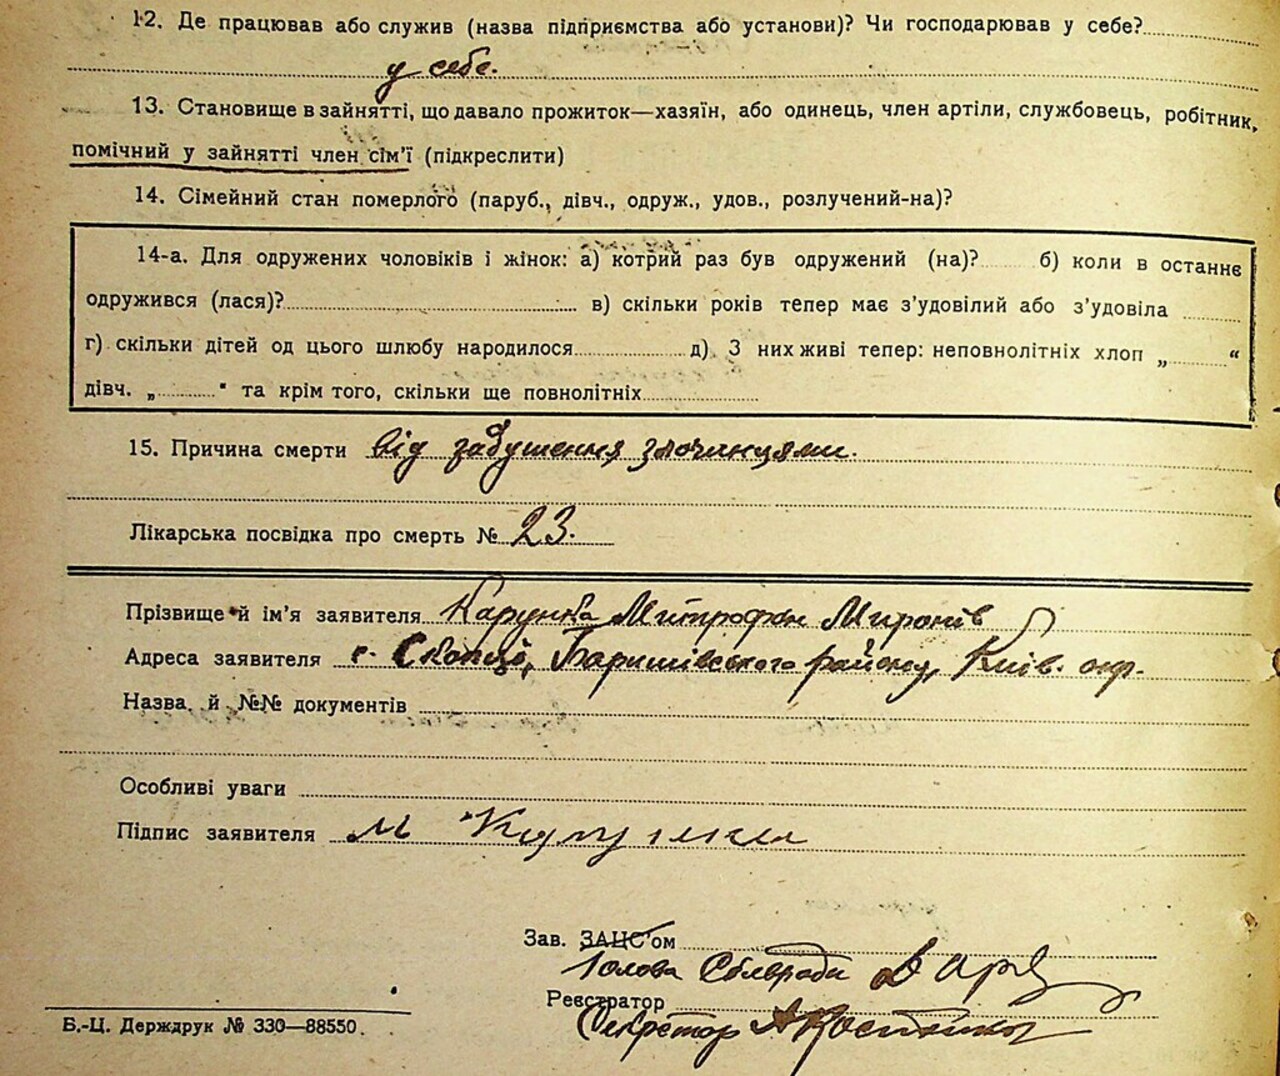 12. Де працював або служив (назва підприємства або установи)? Чи господарював у себе?
у себе.
13. Становище в зайнятті, що давало прожиток—хазяїн, або одинець, член артіли, службовець, робітник,
помічний у зайнятті член сім'ї (підкреслити)
14. Сімейний стан померлого (паруб., дівч., одруж., удов., розлучений-на)?
14-а. Для одружених чоловіків і жінок: а) котрий раз був одружений (на)? б) коли в останнє
одружився (лася)? в) скільки років тепер має з'удовілий або з'удовіла
г) скільки дітей од цього шлюбу народилося д) З них живі тепер: неповнолітніх хлоп „ “
дівч. „ “ та крім того, скільки ще повнолітніх
15. Причина смерти від задушення злочинцями.
Лікарська посвідка про смерть № 23.
Прізвище й ім'я заявителя Карунка Митрофан Миронів
Адреса заявителя с. Скопці, Баришівського району, Київ. окр.
Назва й №№ документів
Особливі уваги
Підпис заявителя М Карунка
Зав. ЗАЦС'ом
Голова Сільради
Реєстратор
Секретар
Б.-Ц. Держдрук № 330—88550.